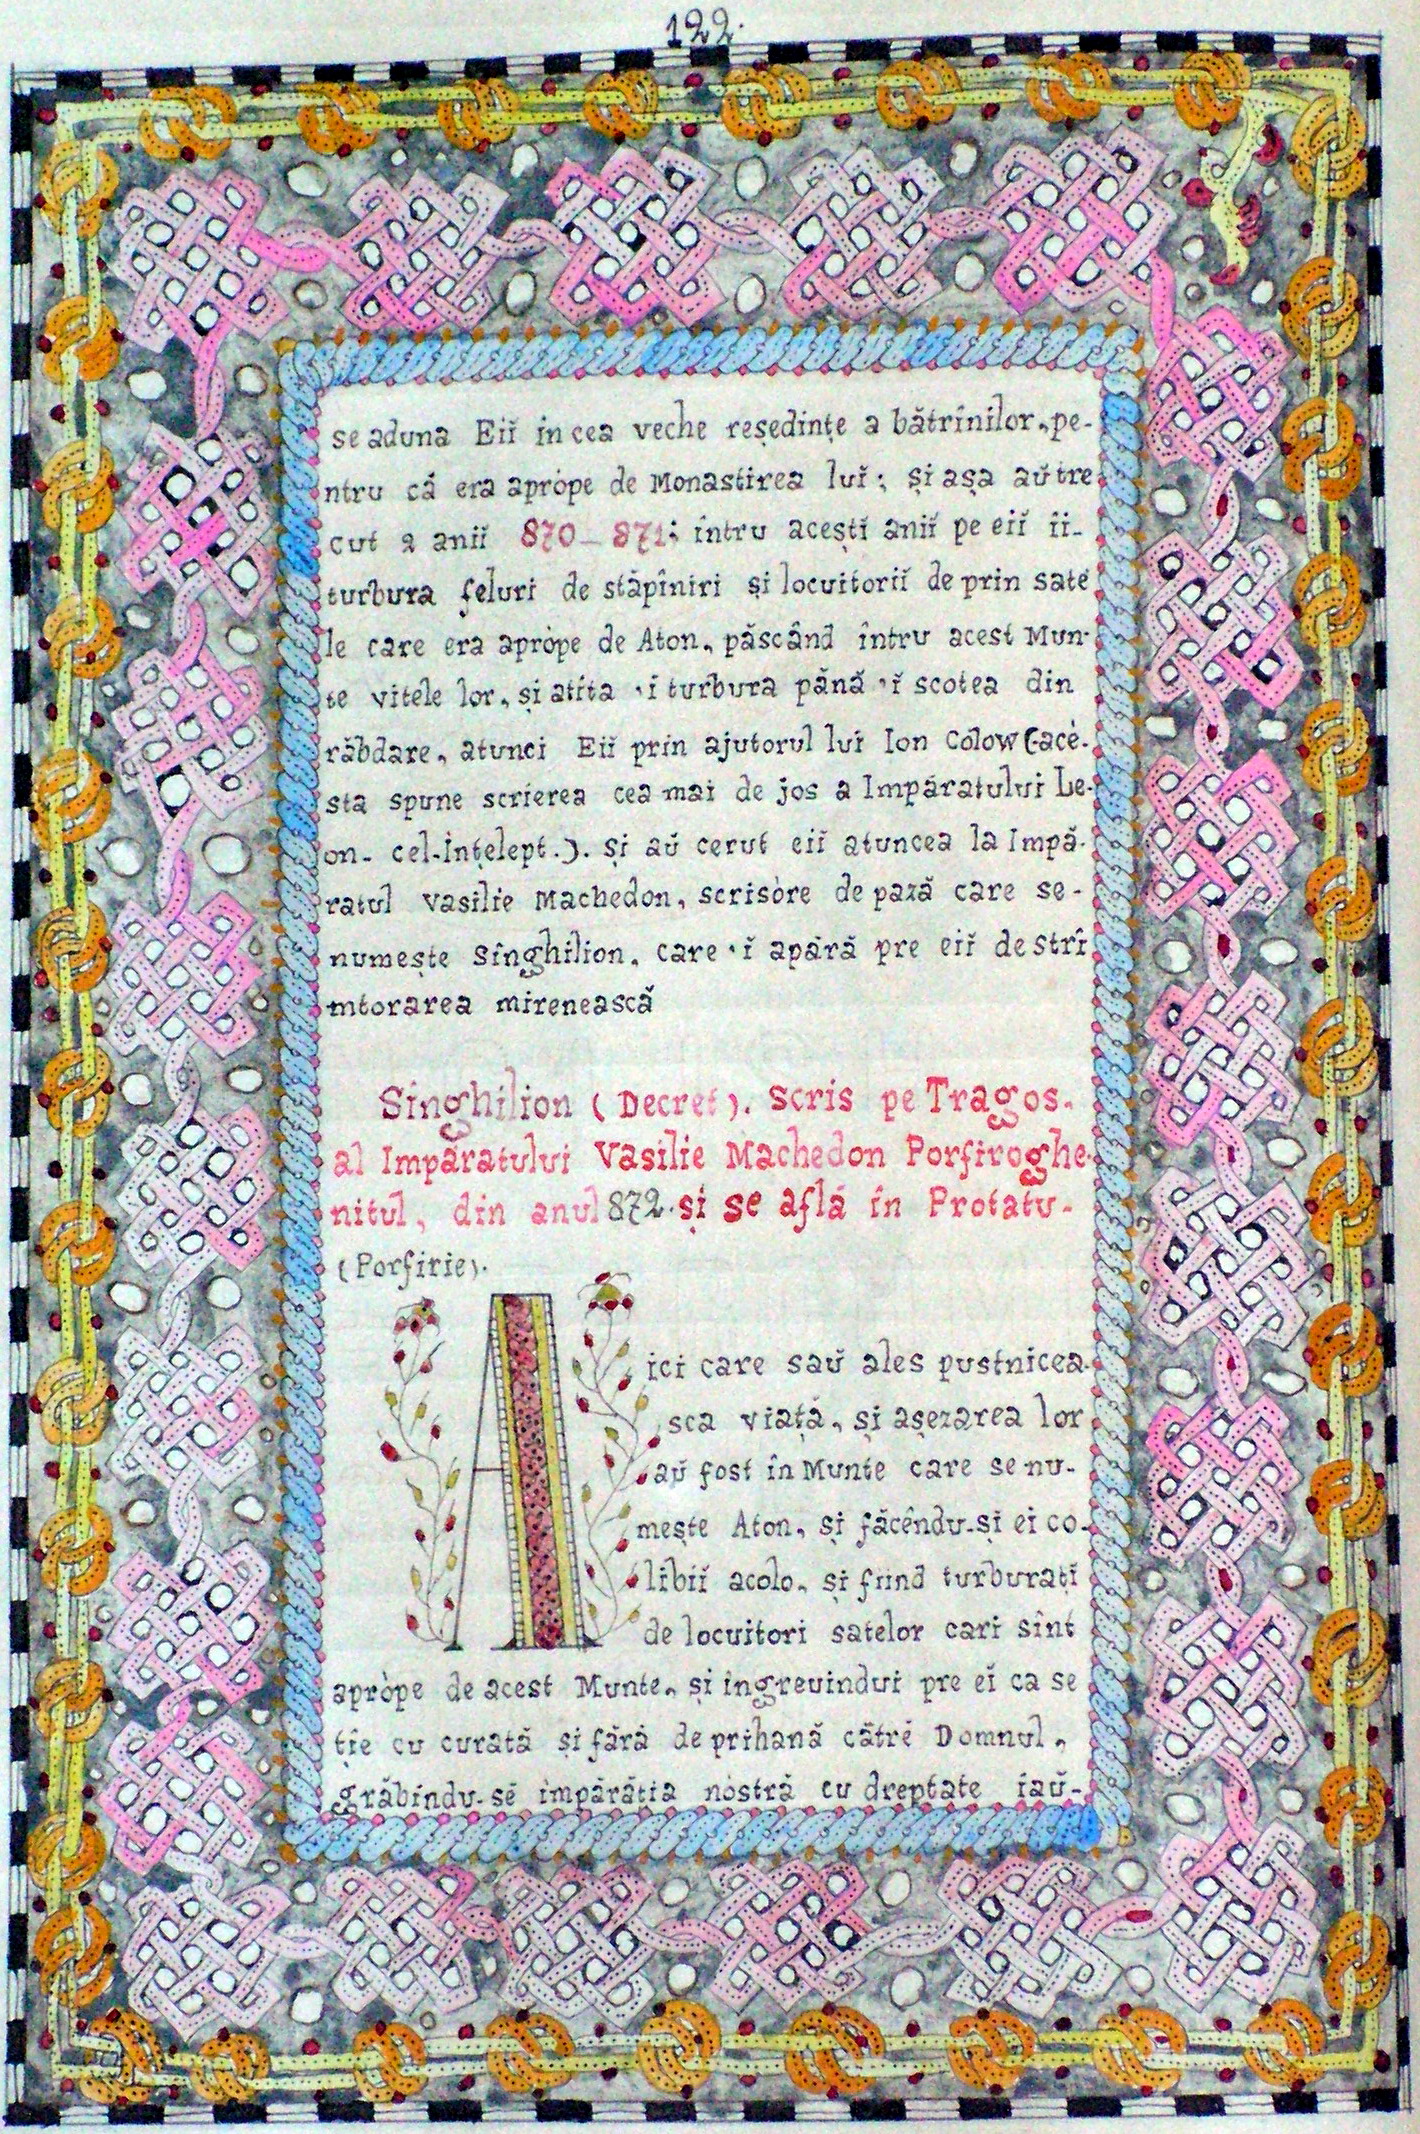 122.
se aduna Eiĭ in cea veche reședințe a bătrînilor, pe-
ntru că era apròpe de Monastirea luĭ; și așa aŭ tre
cut 2 aniĭ 870–871; întru aceștĭ aniĭ pe eiĭ îi-
turbura feluri de stăpîniri și locuitoriĭ de prin sate
le care era apròpe de Aton, păscând întru acest Mun-
te vitele lor, și atîta 'i turbura până 'ĭ scotea din
răbdare, atunci Eiĭ prin ajutorul luĭ Ion Colow (acè-
sta spune scrierea cea mai de jos a Impăratuluĭ Le-
on-cel-Ințelept.). și aŭ cerut eiĭ atuncea la Impă-
ratul Vasilie Machedon, scrisòre de pază care se-
numește Singhilion, care 'ĭ apără pre eiĭ de strî
mtorarea mirenească
Singhilion (Decret). Scris pe Tragos.
al Impăratului Vasilie Machedon Porfiroghe-
nitul, din anul 872 și se află în Protatu-
(Porfirie).
Aici care saŭ ales pustnicea-
sca viață, și așezarea lor
aŭ fost în Munte care se nu-
mește Aton, și făcêndu-și ei co-
libiĭ acolo, și fiind turburațĭ
de locuitori satelor cari sînt
apròpe de acest Munte, și ingreuindui pre eĭ ca se
ție cu curată și fără de prihană cătrĕ Domnul,
grăbindu-sĕ impărăția nòstră cu dreptate iaŭ-